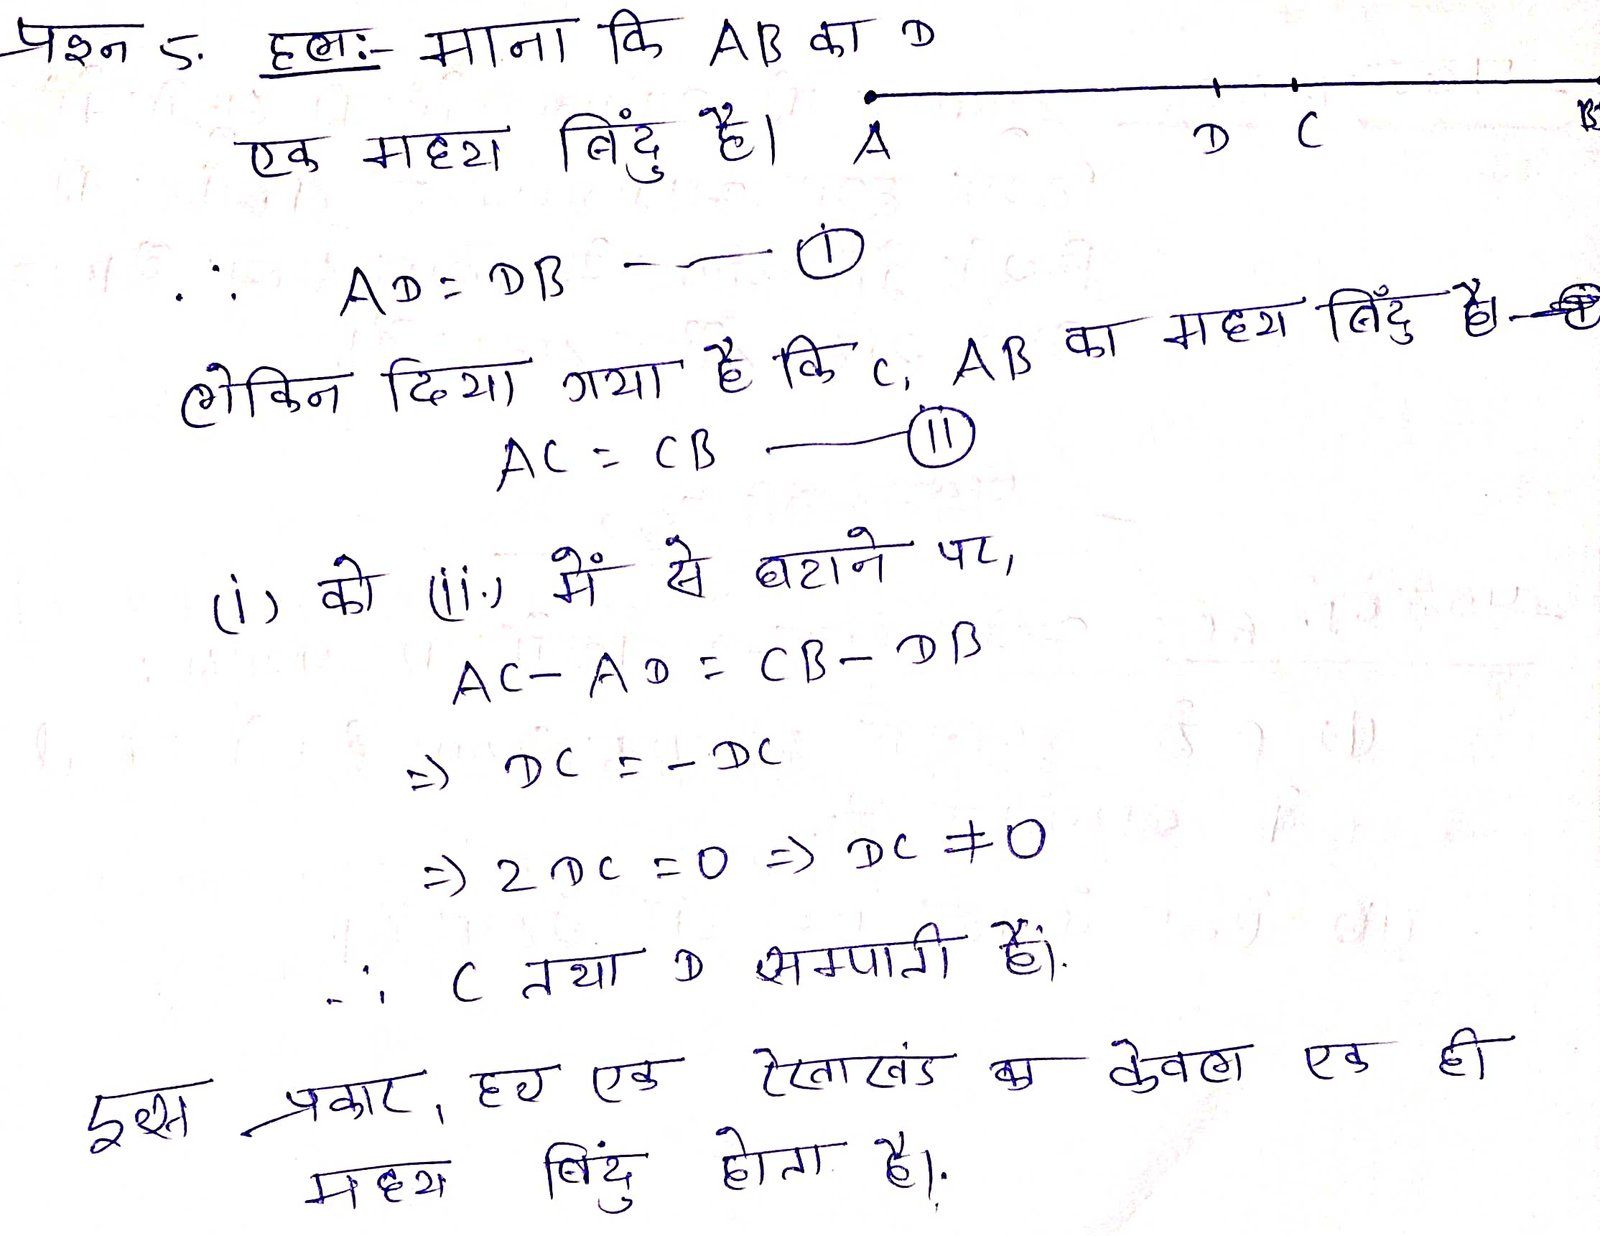 प्रश्न 5. हल:- माना कि AB का D
एक मध्य बिंदु है।
A D C B
∴ AD = DB —— (i)
लेकिन दिया गया है कि C, AB का मध्य बिंदु है।
AC = CB —— (ii)
(i) को (ii) में से घटाने पर,
AC - AD = CB - DB
=> DC = - DC
=> 2 DC = 0 => DC ≠ 0
∴ C तथा D सम्पाती हैं।
इस प्रकार, हर एक रेखाखंड का केवल एक ही
मध्य बिंदु होता है।